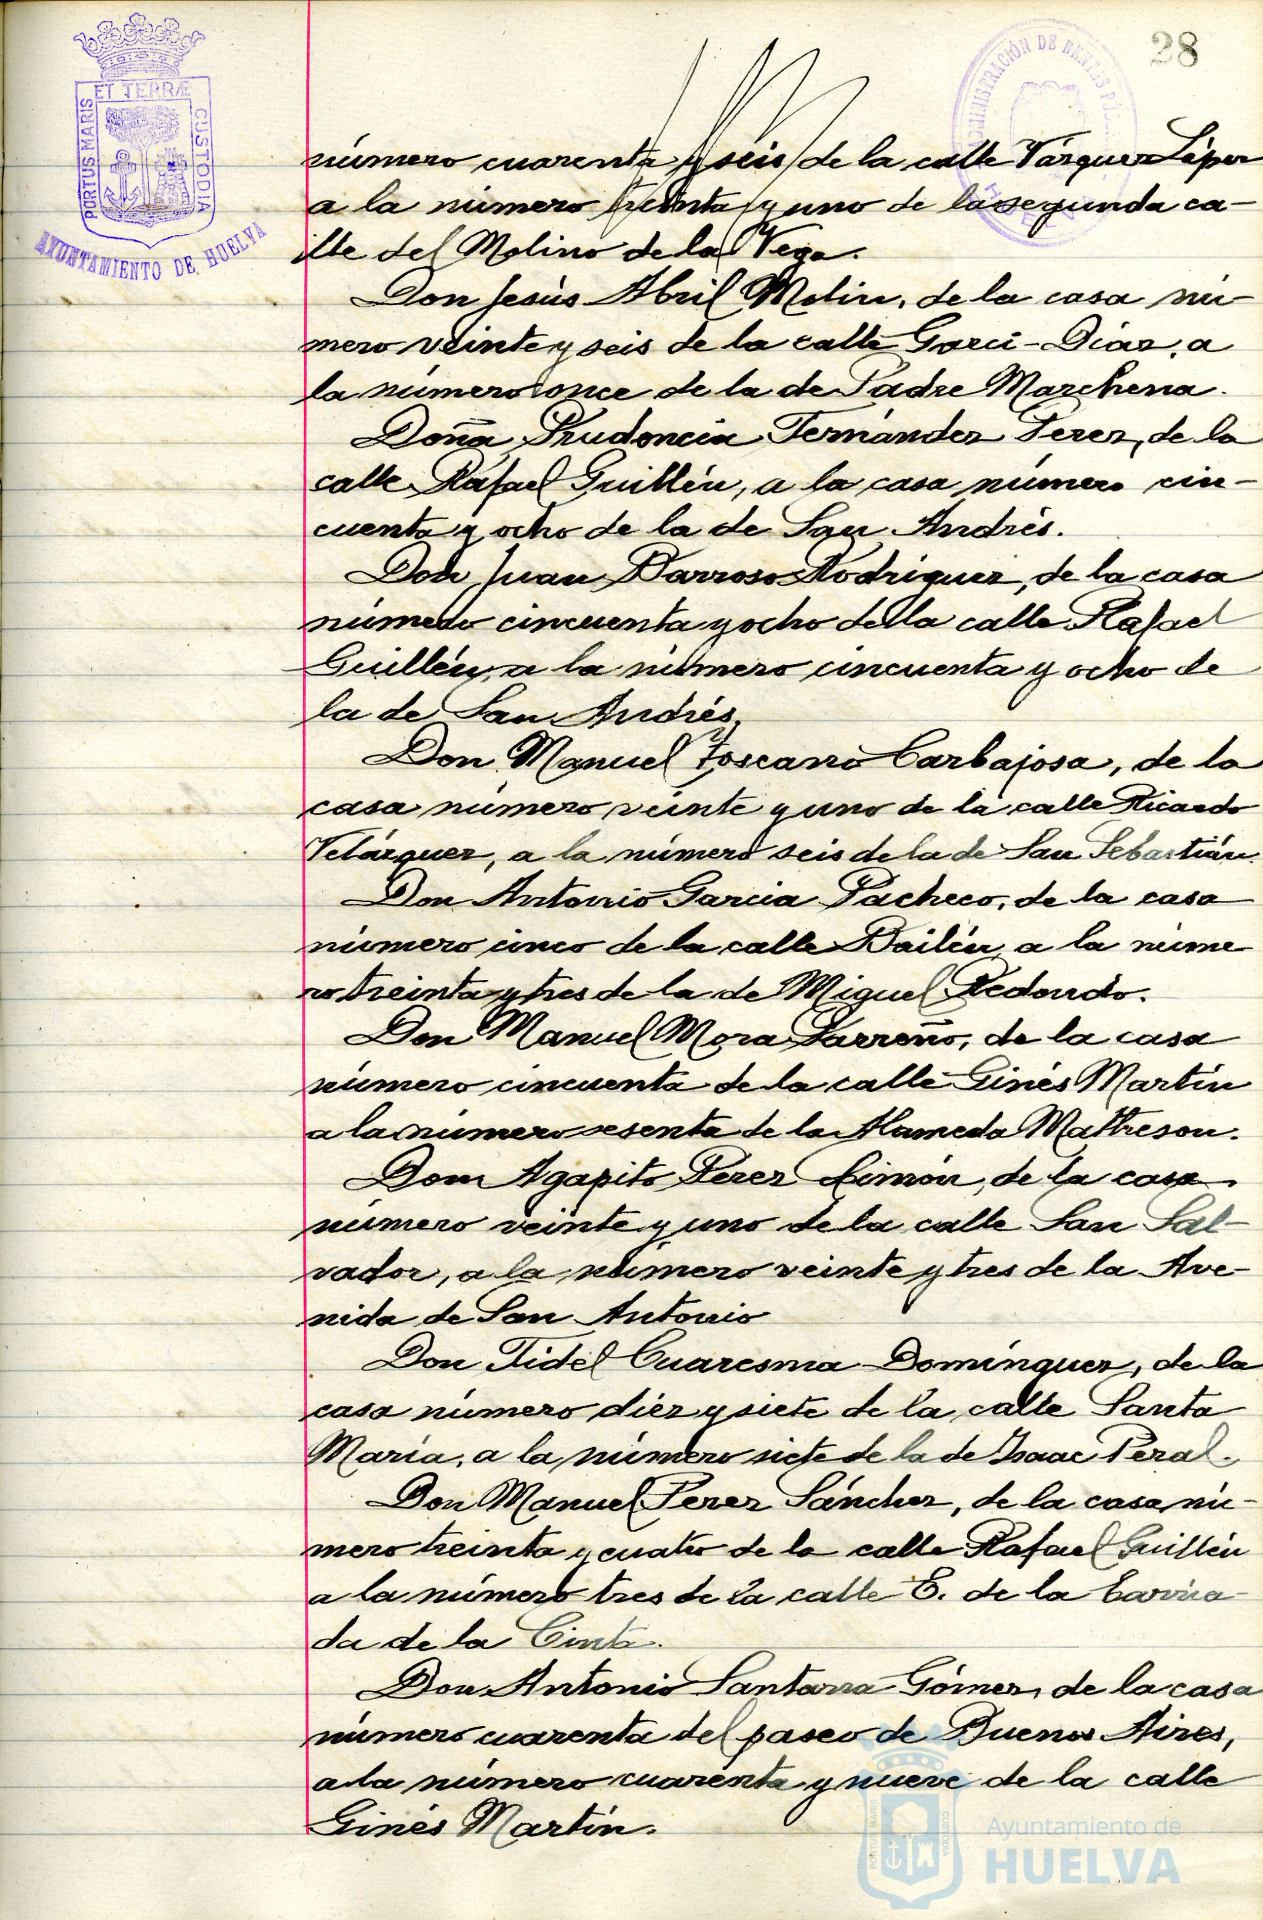 28
ET TERRÆ
PORTUS MARIS
CUSTODIA
AYUNTAMIENTO DE HUELVA
ADMINISTRACIÓN DE RENTAS
HUELVA
número cuarenta y seis de la calle Vázquez López
a la número treinta y uno de la segunda ca-
lle del Molino de la Vega.
Don Jesús Abril Molin, de la casa nú-
mero veinte y seis de la calle Garci-Díaz, a
la número once de la de Padre Marchena.
Doña Prudencia Fernández Perez, de la
calle Rafael Guillén, a la casa número cin-
cuenta y ocho de la de San Andrés.
Don Juan Barroso Rodriguez, de la casa
número cincuenta y ocho de la calle Rafael
Guillén, a la número cincuenta y ocho de
la de San Andrés.
Don Manuel Toscano Carbajosa, de la
casa número veinte y uno de la calle Ricardo
Velázquez, a la número seis de la de San Sebastián.
Don Antonio Garcia Pacheco, de la casa
número cinco de la calle Bailén a la núme
ro treinta y tres de la de Miguel Redondo.
Don Manuel Mora Larreño, de la casa
número cincuenta de la calle Ginés Martín
a la número sesenta de la Alameda Matheson.
Don Agapito Perez Limón, de la casa
número veinte y uno de la calle San Sal-
vador, a la número veinte y tres de la Ave-
nida de San Antonio
Don Fidel Cuaresma Domínguez, de la
casa número diéz y siete de la calle Santa
María, a la número siete de la de Isaac Peral.
Don Manuel Perez Sánchez, de la casa nú-
mero treinta y cuatro de la calle Rafael Guillén
a la número tres de la calle E. de la barria-
da de la Cinta.
Don Antonio Santana Gómez, de la casa
número cuarenta del paseo de Buenos Aires,
a la número cuarenta y nueve de la calle
Ginés Martín.
Ayuntamiento de
HUELVA